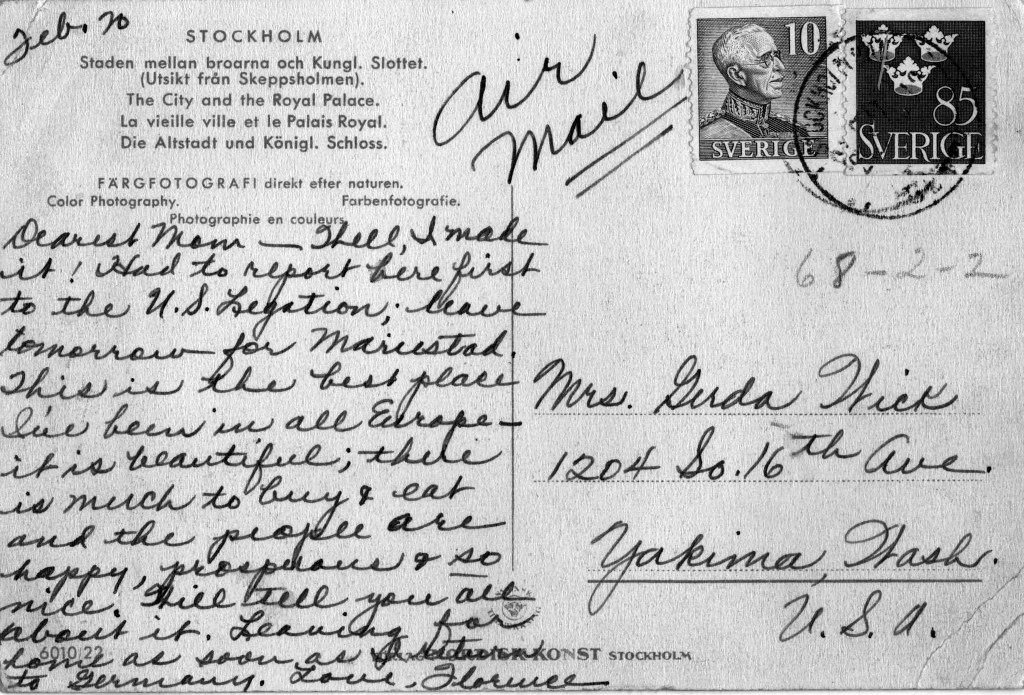 Feb. 20
STOCKHOLM
Staden mellan broarna och Kungl. Slottet.
(Utsikt från Skeppsholmen).
The City and the Royal Palace.
La vieille ville et le Palais Royal.
Die Altstadt und Königl. Schloss.
FÄRGFOTOGRAFI direkt efter naturen.
Color Photography. Farbenfotografie.
Photographie en couleurs.
Air
Mail
10
SVERIGE
85
SVERIGE
STOCKHOLM
68-2-2
Dearest Mom — Well, I made
it! Had to report here first
to the U.S. Legation; leave
tomorrow for Mariestad.
This is the best place
I've been in all Europe—
it is beautiful; there
is much to buy & eat
and the people are
happy, prosperous & so
nice. Will tell you all
about it. Leaving for
home as soon as I return
to Germany. Love, Florence
Mrs. Gerda Wick
1204 So. 16th Ave.
Yakima, Wash.
U. S. A.
6010/22
KONST STOCKHOLM